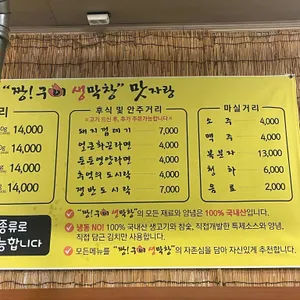 "짱!구이 생막창" 맛자랑
리
14,000
14,000
14,000
14,000
종류로
능합니다
후식 및 안주거리
※고기 드신 후, 추가 주문가능합니다※
돼지껍데기 7,000
얼큰화끈라면 4,000
든든영양라면 4,000
추억의 도시락 4,000
쟁반도시락 7,000
마실거리
소주 4,000
맥주 4,000
복분자 13,000
청하 6,000
음료 2,000
"짱!구이 생막창"의 모든 재료와 양념은 100% 국내산입니다.
냉동 NO! 100% 국내산 생고기와 참숯, 직접개발한 특제소스와 양념,
직접 담근 김치만 사용합니다.
모든메뉴를 "짱!구이 생막창"의 자존심을 담아 자신있게 추천합니다.